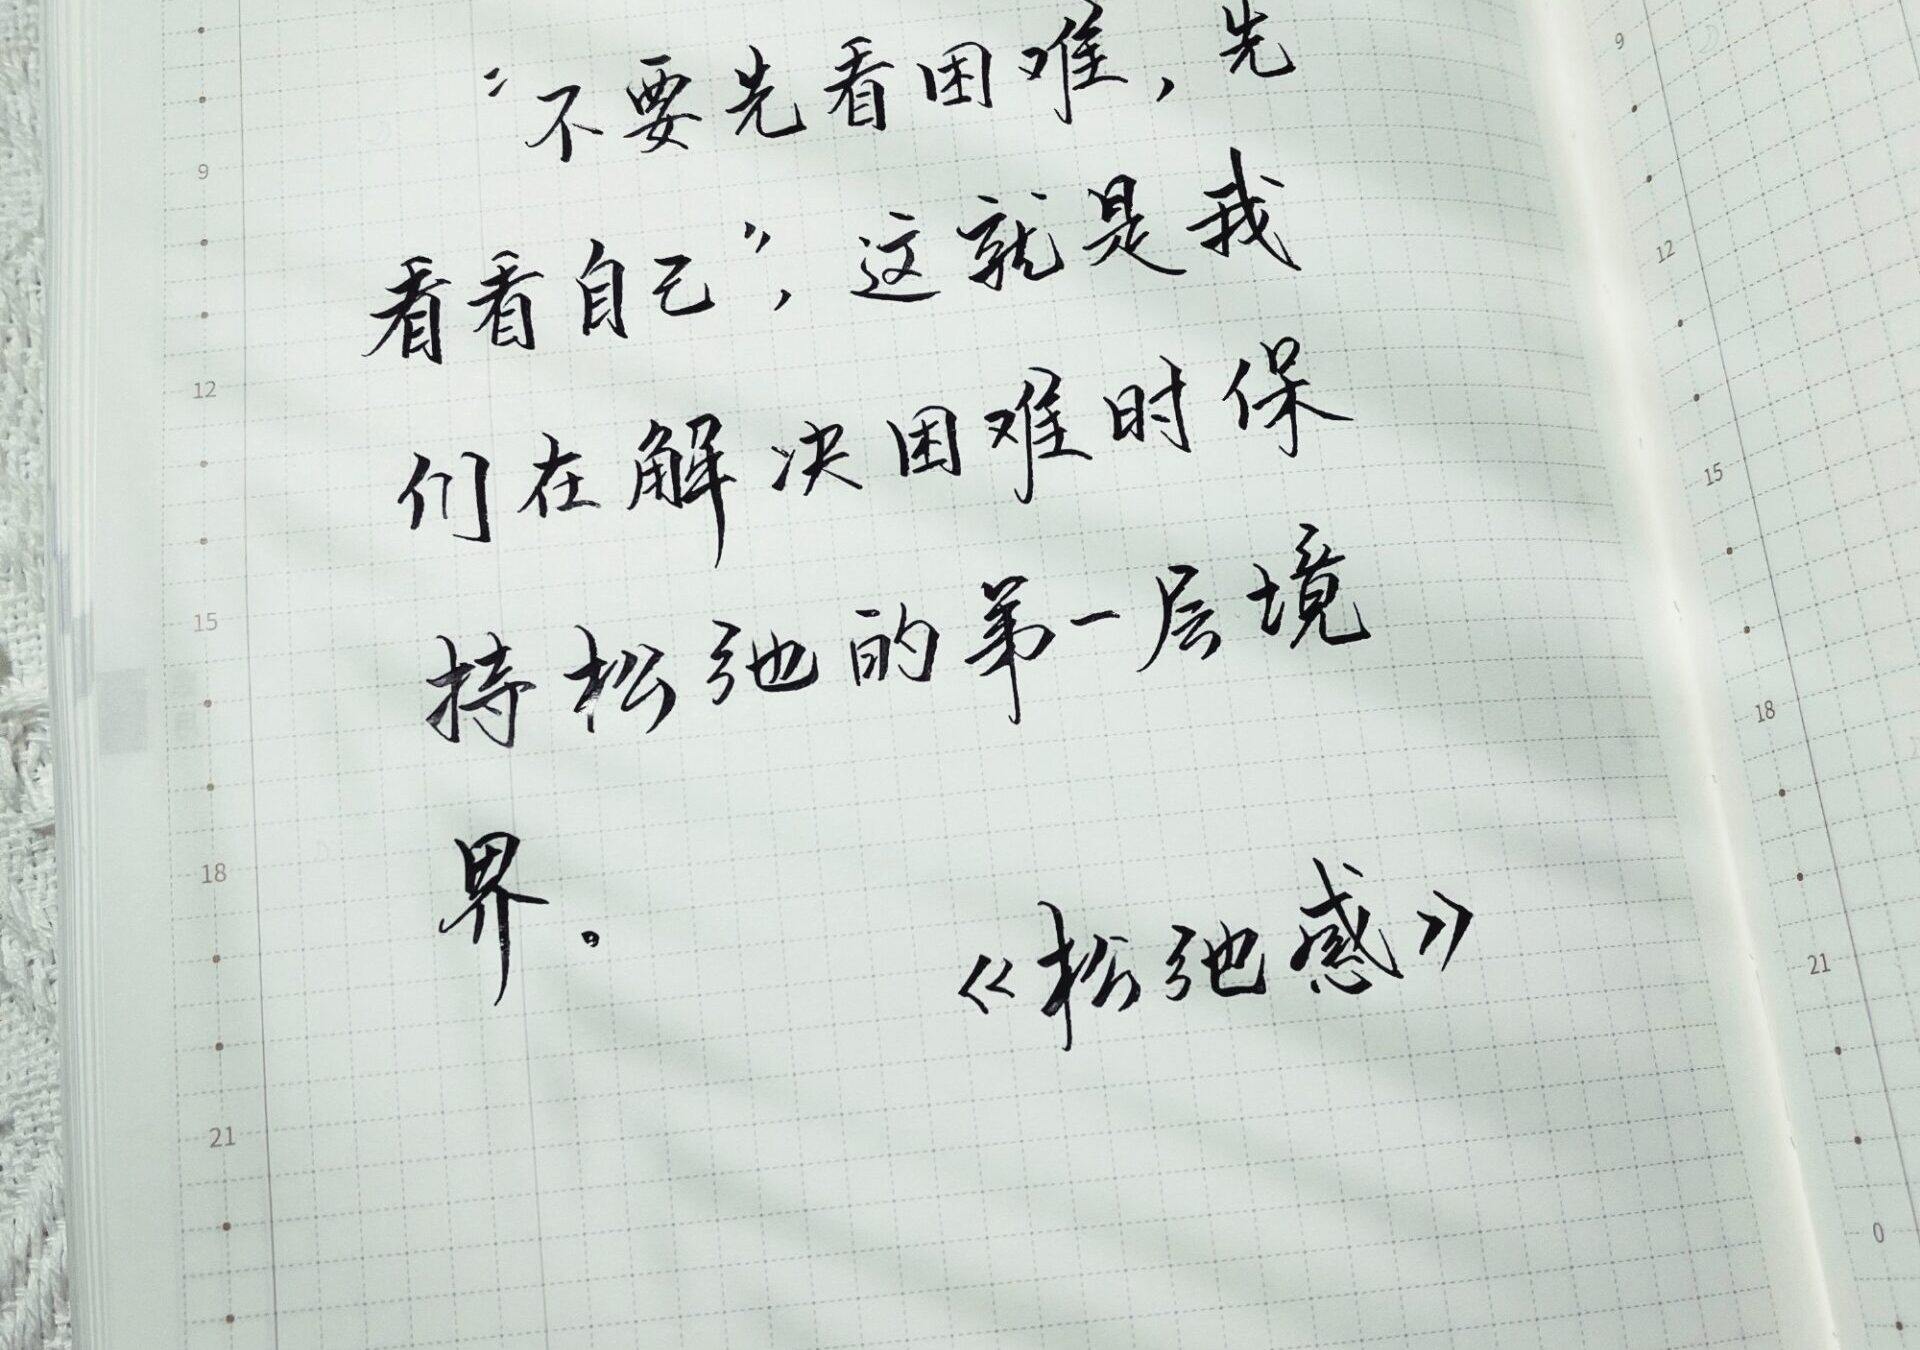 “不要先看困难，先
看看自己”，这就是我
们在解决困难时保
持松弛的第一层境
界。
《松弛感》
9
12
15
18
21
9
12
15
18
21
0